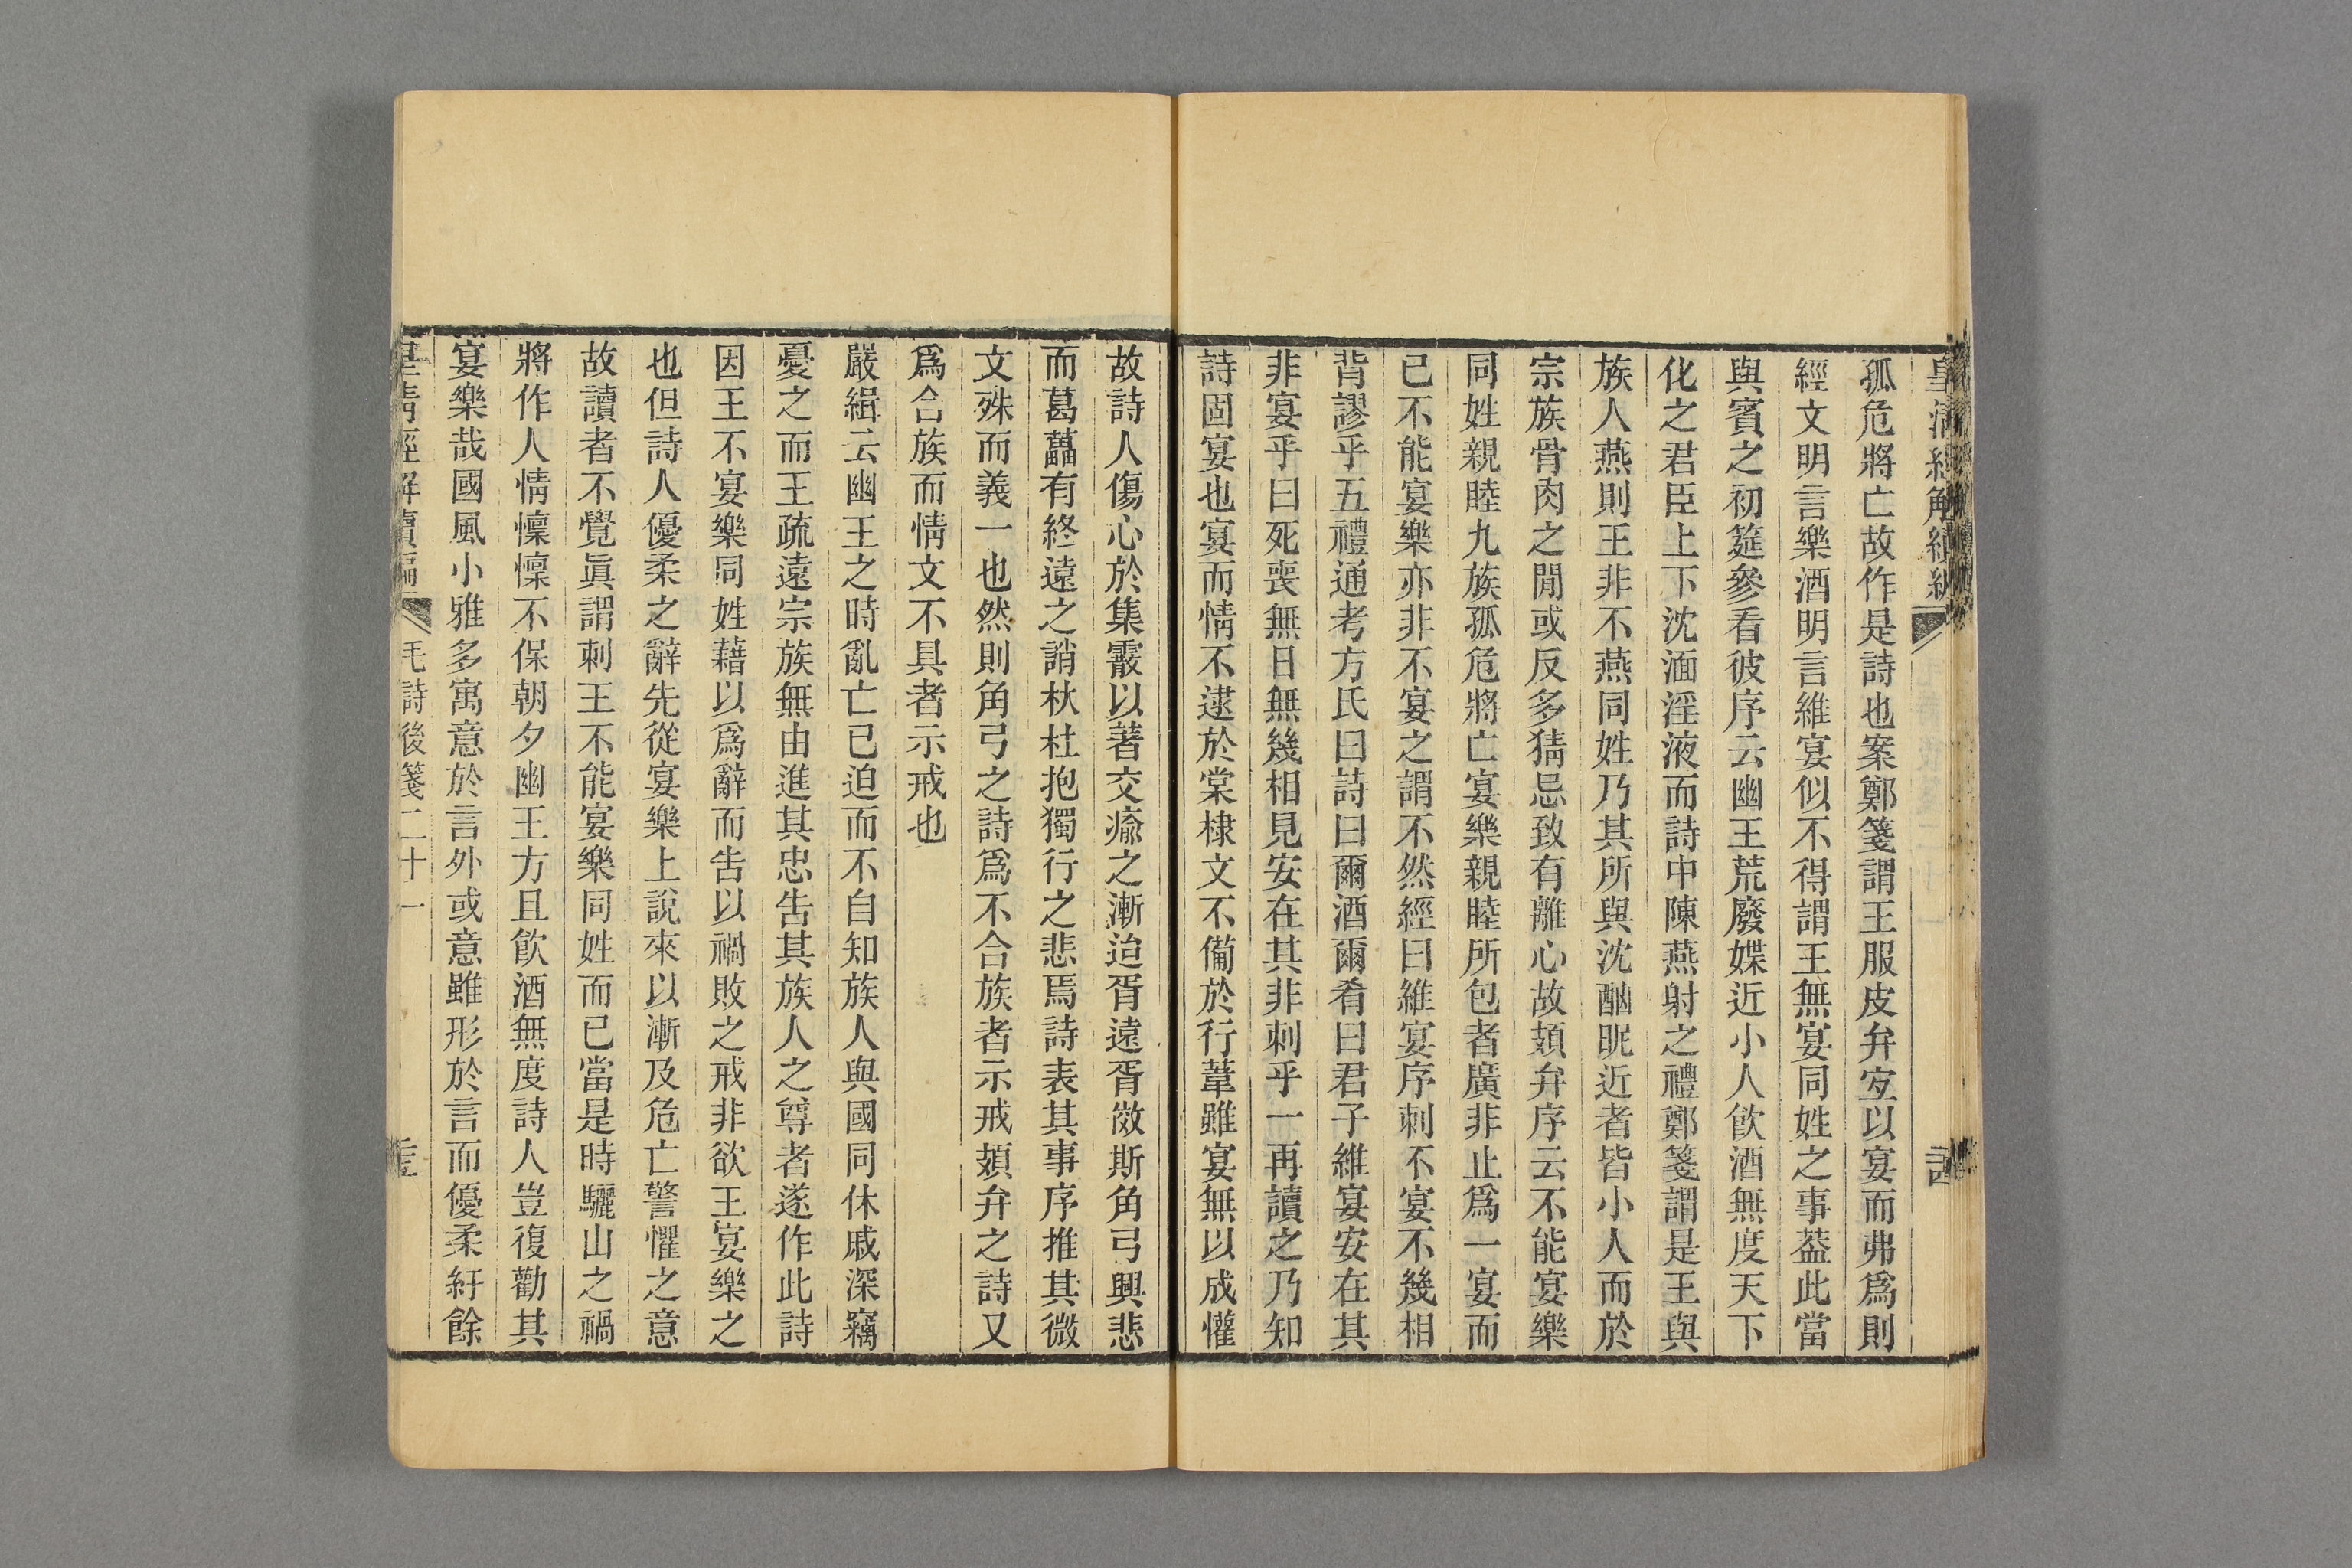 皇清經解續編
孤危將亡故作是詩也案鄭箋謂王服皮弁㝎以宴而弗爲則
經文明言樂酒明言維宴似不得謂王無宴同姓之事葢此當
與賓之初筵參看彼序云幽王荒廢媟近小人飮酒無度天下
化之君臣上下沈湎淫液而詩中陳燕射之禮鄭箋謂是王與
族人燕則王非不燕同姓乃其所與沈酗昵近者皆小人而於
宗族骨肉之閒或反多猜忌致有離心故頍弁序云不能宴樂
同姓親睦九族孤危將亡宴樂親睦所包者廣非止爲一宴而
已不能宴樂亦非不宴之謂不然經曰維宴序刺不宴不幾相
背謬乎五禮通考方氏曰詩曰爾酒爾肴曰君子維宴安在其
非宴乎曰死喪無日無幾相見安在其非刺乎一再讀之乃知
詩固宴也宴而情不逮於棠棣文不備於行葦雖宴無以成懽
故詩人傷心於集霰以著交瘉之漸迨胥遠胥傚斯角弓興悲
而葛藟有終遠之誚杕杜抱獨行之悲焉詩表其事序推其微
文殊而義一也然則角弓之詩爲不合族者示戒頍弁之詩又
爲合族而情文不具者示戒也
嚴緝云幽王之時亂亡已迫而不自知族人與國同休戚深竊
憂之而王疏遠宗族無由進其忠告其族人之尊者遂作此詩
因王不宴樂同姓藉以爲辭而吿以禍敗之戒非欲王宴樂之
也但詩人優柔之辭先從宴樂上說來以漸及危亡警懼之意
故讀者不覺眞謂刺王不能宴樂同姓而已當是時驪山之禍
將作人情懔懔不保朝夕幽王方且飮酒無度詩人豈復勸其
宴樂哉國風小雅多寓意於言外或意雖形於言而優柔紆餘
皇清經解續編 毛詩後箋二十一